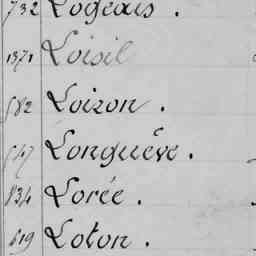 732 Logeais.
1371 Loisil
582 Loizon.
547 Longuêve.
834 Lorée.
619 Loton.